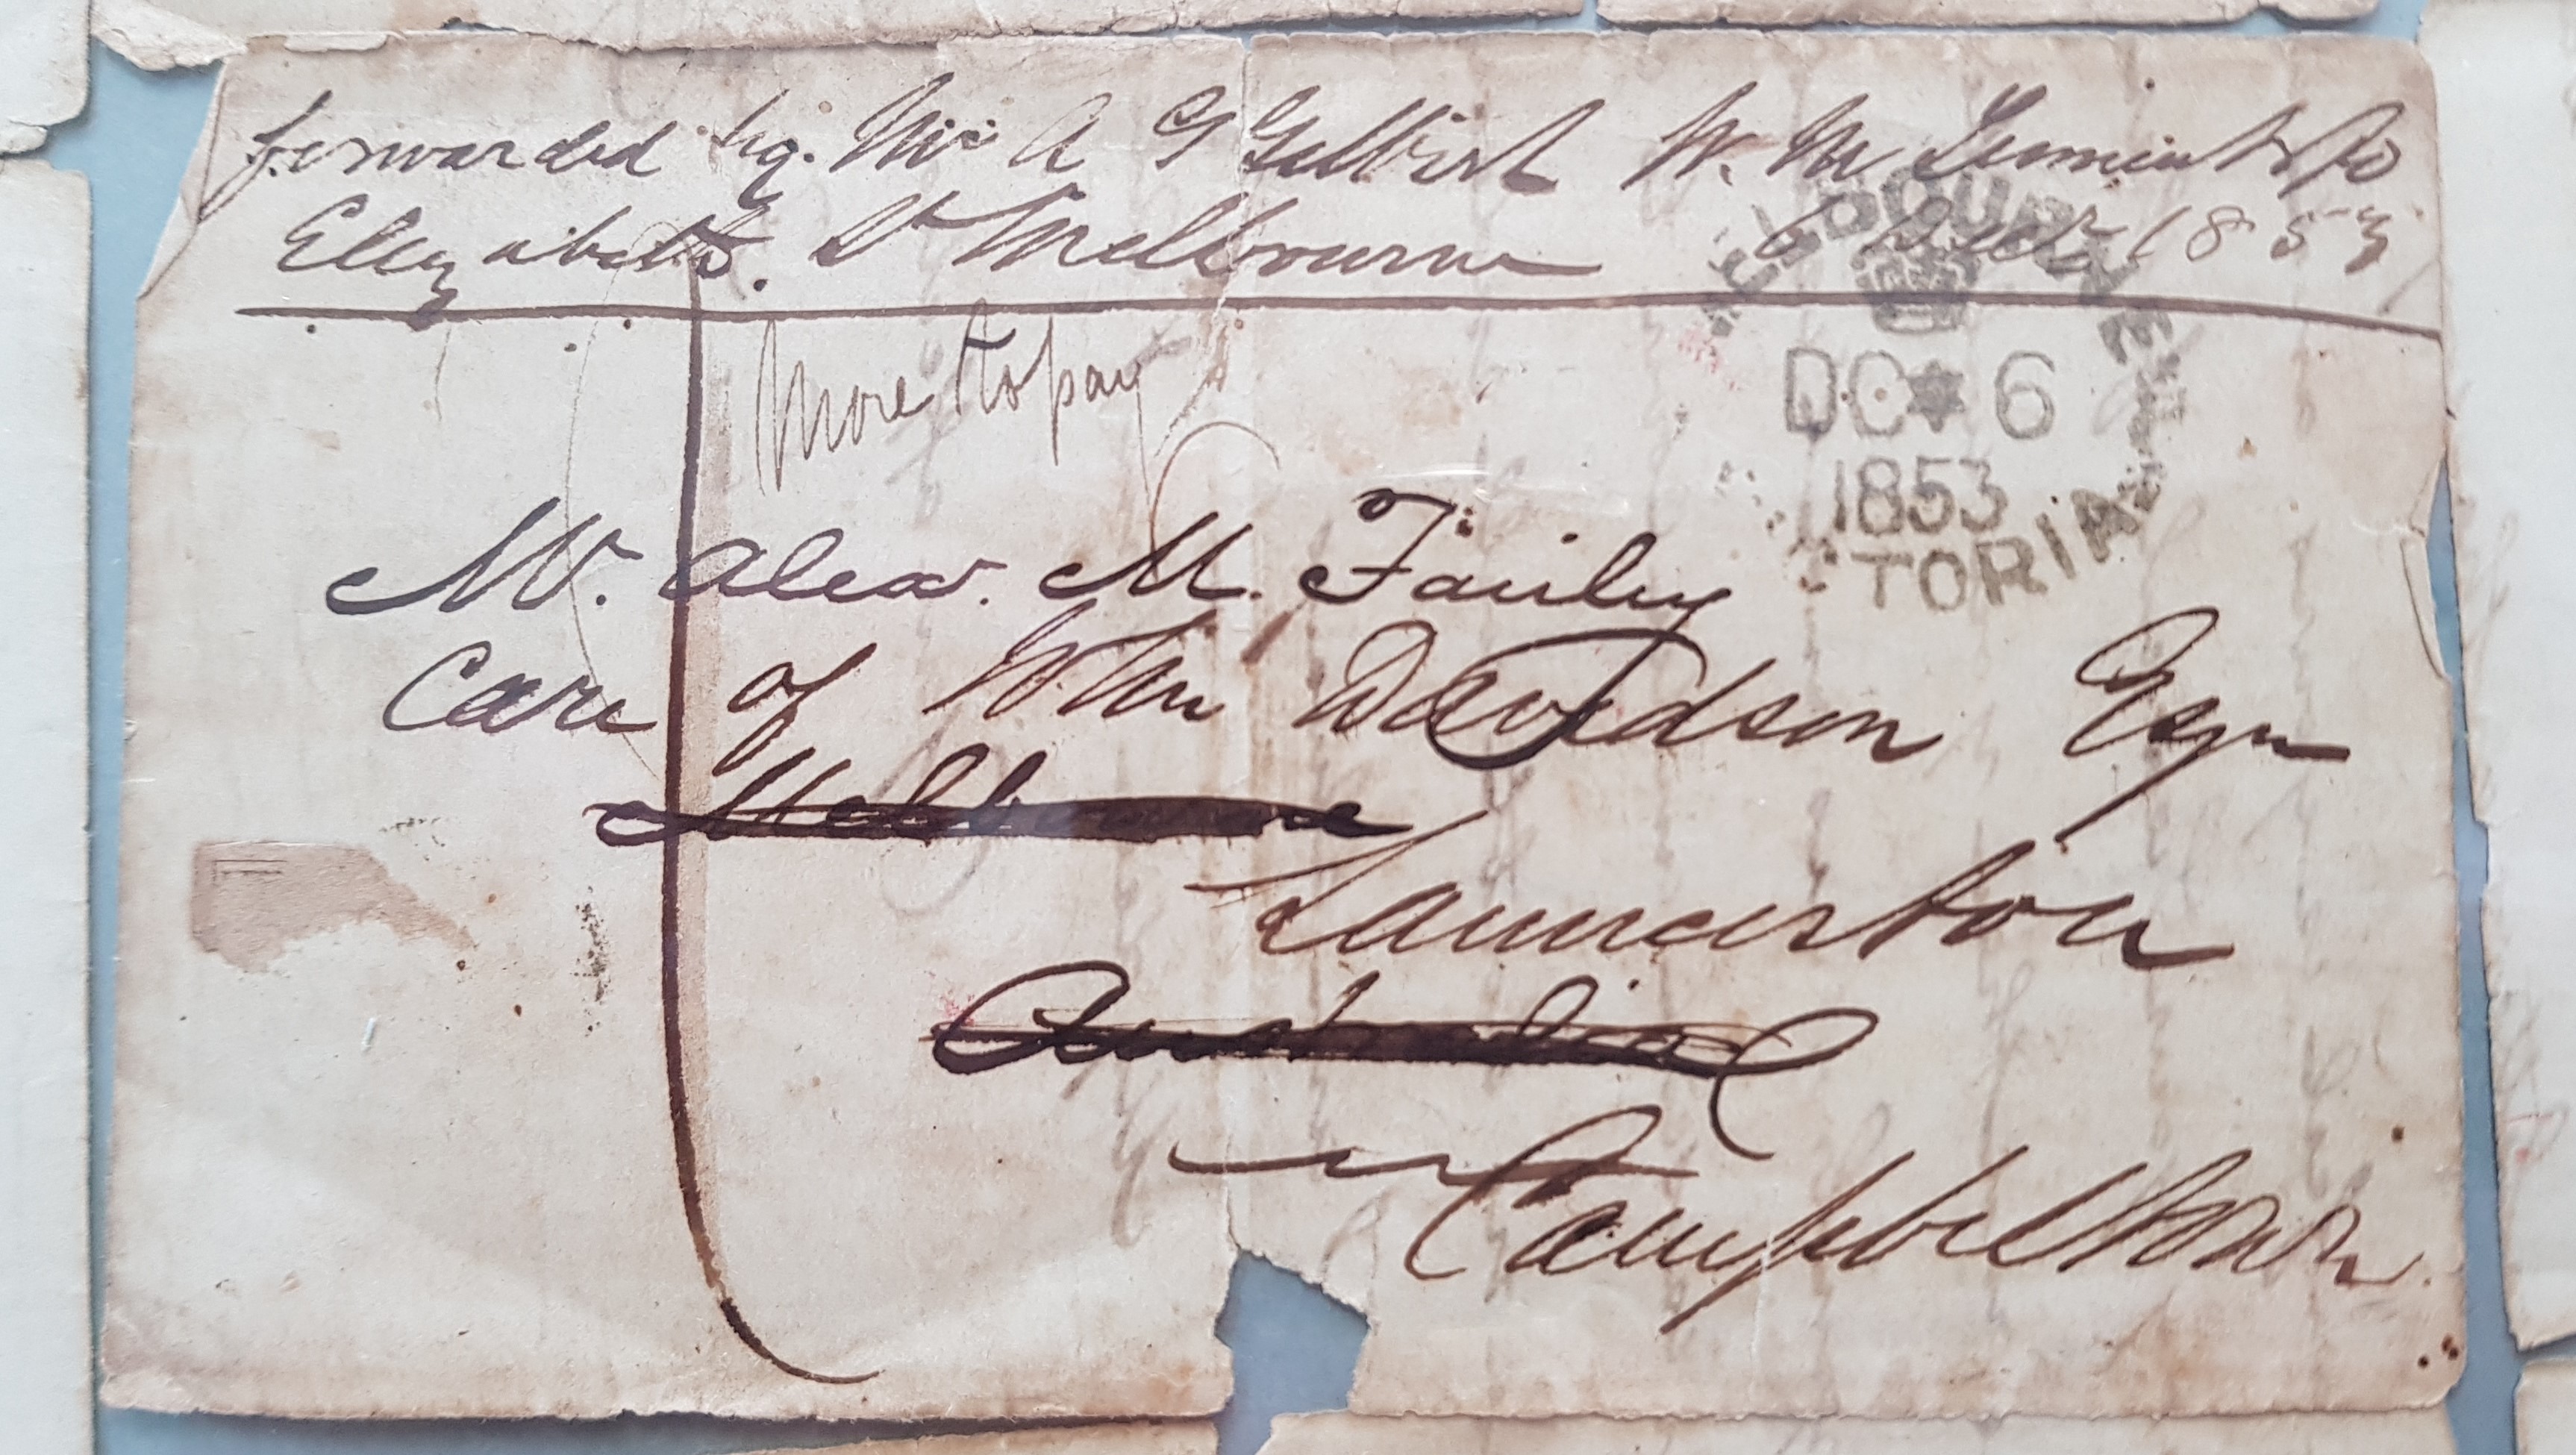 forwarded by. Mr A G Gilbert W. M
Elizabeth. St Melbourne 6 Decr 1853
MELBOURNE
DC 6
1853
VICTORIA
More to pay
Mr. Alexr. M. Fairley
Care of Wm Davidson Esqr
Melbourne
Launceston
Australia
Campbelltown